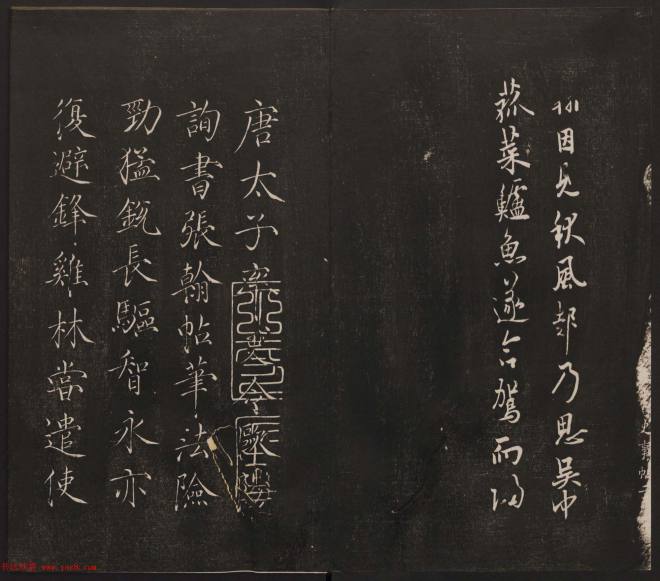 因見秋風起乃思吳中
菰菜鱸魚遂命駕而歸
唐太子率更令歐陽
詢書張翰帖筆法險
勁猛銳長驅智永亦
復避鋒雞林當遣使
书法欣赏 www.yac8.com